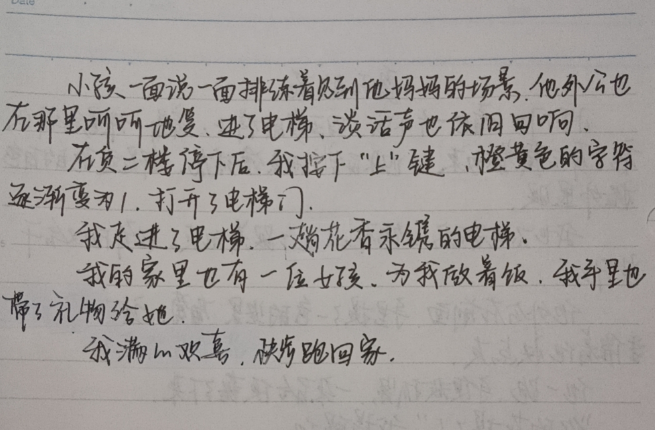 小孩一面说一面排练着见到他妈妈的场景,他外公也
在那里呵呵地笑.进了电梯、谈话声也依旧回响.
在负二楼停下后.我按下“上”键,橙黄色的字符
逐渐变为1.打开了电梯门.
我走进了电梯.一趟花香永镌的电梯.
我的家里也有一位女孩.为我做着饭.我手里也
带了礼物给她.
我满心欢喜,快步跑回家.